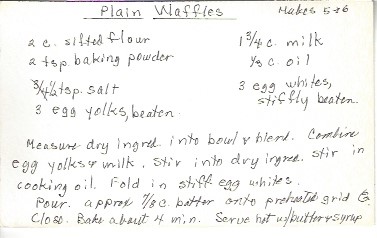 Plain Waffles Makes 5-6
2 c. sifted flour 1 3/4 c. milk
2 tsp. baking powder 1/3 c. oil
3/4 tsp. salt 3 egg whites,
3 egg yolks, beaten stiffly beaten.
Measure dry ingred. into bowl & blend. Combine
egg yolks & milk. Stir into dry ingred. stir in
cooking oil. Fold in stiff egg whites.
Pour approx 7/8 c. batter onto preheated grid &
Close. Bake about 4 min. Serve hot w/butter & syrup